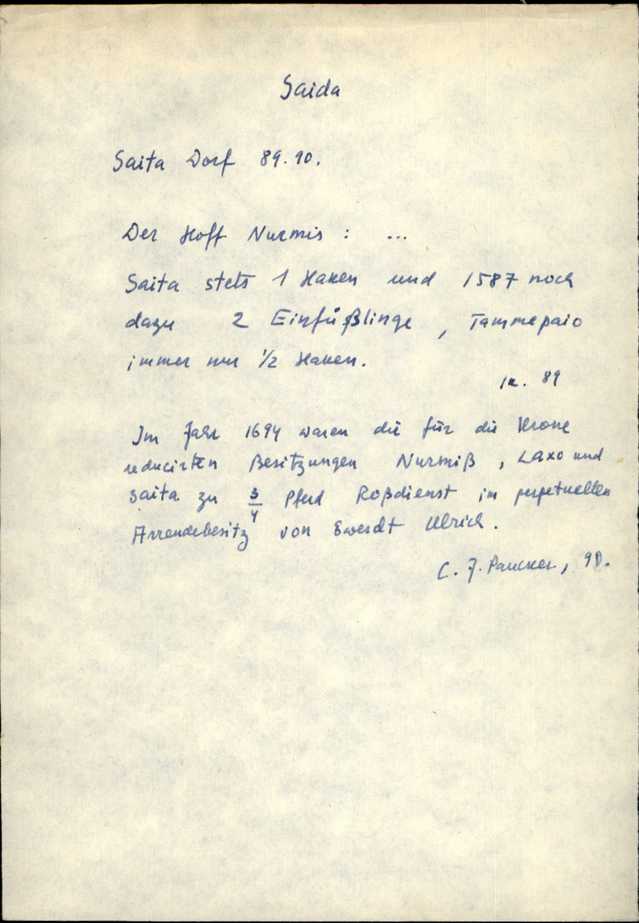 Saida
Saita Dorf 89.90.
Der Hoff Nurmis : ...
Saita stets 1 Haken und 1587 noch
dazu 2 Einfüßlinge, Tammepaio
immer nur 1/2 Haken.
k. 89
Im Jahr 1694 waren die für die Krone
reducirten Besitzungen Nurmiß, Laxo und
Saita zu 3/4 Pferd Roßdienst im perpetuellen
Arrendebesitz von Ewerdt Ulrich.
C. J. Paucker, 90.